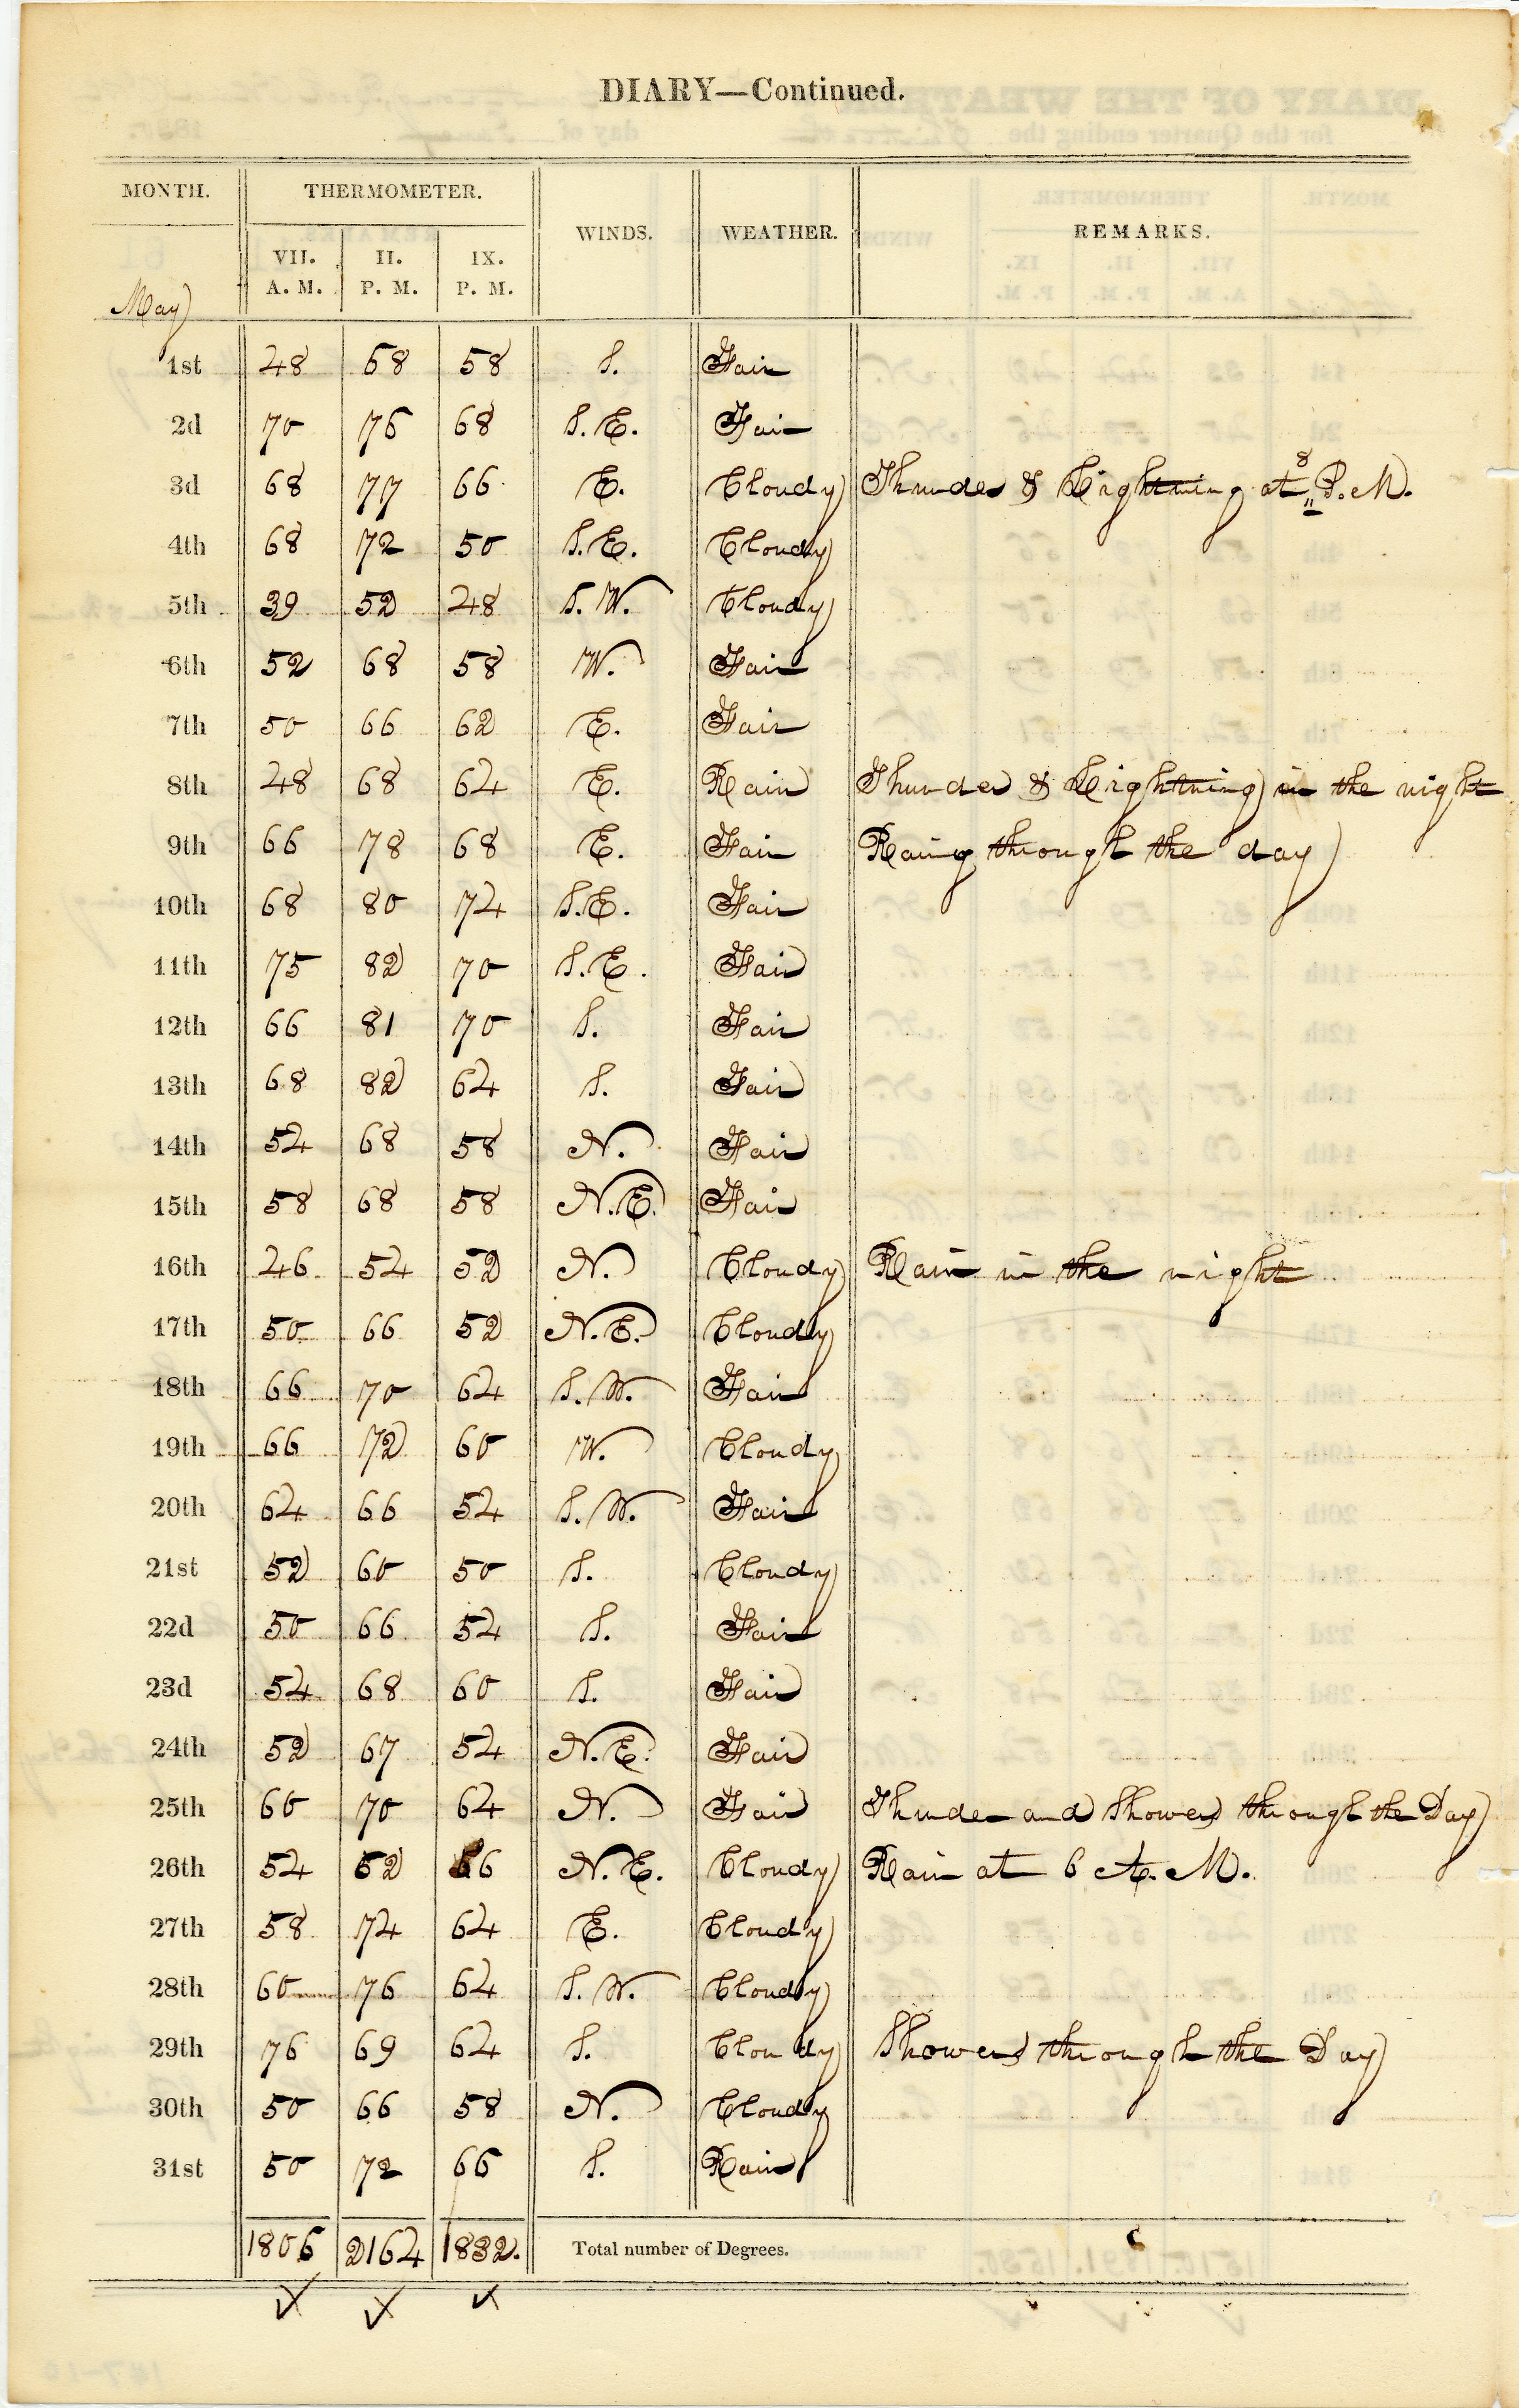 DIARY—Continued.
MONTH. THERMOMETER. WINDS. WEATHER. REMARKS.
VII. A. M. II. P. M. IX. P. M.
May
1st 48 68 58 S. Fair
2d 70 76 68 S. E. Fair
3d 68 77 66 E. Cloudy Thunder & Lightning at 8 P. M.
4th 68 72 50 S. E. Cloudy
5th 39 52 48 S. W. Cloudy
6th 52 68 58 W. Fair
7th 50 66 62 E. Fair
8th 48 68 64 E. Rain Thunder & Lightning in the night
9th 66 78 68 E. Fair Raing through the day
10th 68 80 74 S. E. Fair
11th 75 82 70 S. E. Fair
12th 66 81 70 S. Fair
13th 68 82 64 S. Fair
14th 54 68 58 N. Fair
15th 58 68 58 N. E. Fair
16th 46 54 52 N. Cloudy Rain in the night
17th 50 66 52 N. E. Cloudy
18th 66 70 64 S. W. Fair
19th 66 72 60 W. Cloudy
20th 64 66 54 S. W. Fair
21st 52 60 50 S. Cloudy
22d 50 66 54 S. Fair
23d 54 68 60 S. Fair
24th 52 67 54 N. E. Fair
25th 60 70 64 N. Fair Thunder and Showers through the Day
26th 54 62 66 N. E. Cloudy Rain at 6 A. M.
27th 58 74 64 E. Cloudy
28th 60 76 64 S. W. Cloudy
29th 76 69 64 S. Cloudy Showers through the Day
30th 50 66 58 N. Cloudy
31st 50 72 66 S. Rain
1806 2164 1882. Total number of Degrees.